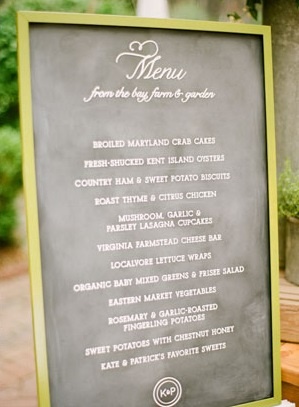 Menu
from the bay, farm & garden
BROILED MARYLAND CRAB CAKES
FRESH-SHUCKED KENT ISLAND OYSTERS
COUNTRY HAM & SWEET POTATO BISCUITS
ROAST THYME & CITRUS CHICKEN
MUSHROOM, GARLIC &
PARSLEY LASAGNA CUPCAKES
VIRGINIA FARMSTEAD CHEESE BAR
LOCALVORE LETTUCE WRAPS
ORGANIC BABY MIXED GREENS & FRISEE SALAD
EASTERN MARKET VEGETABLES
ROSEMARY & GARLIC-ROASTED
FINGERLING POTATOES
SWEET POTATOES WITH CHESTNUT HONEY
KATE & PATRICK'S FAVORITE SWEETS
K&P